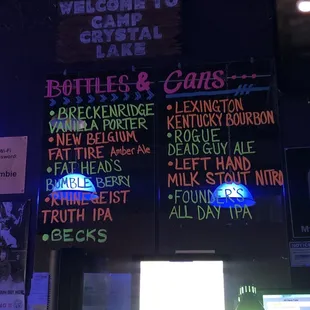 WELCOME TO
CAMP
CRYSTAL
LAKE
BOTTLES & CANS...
• BRECKENRIDGE
VANILLA PORTER
• NEW BELGIUM
FAT TIRE Amber Ale
• FAT HEAD'S
BUMBLE BERRY
• RHINEGEIST
TRUTH IPA
• BECKS
• LEXINGTON
KENTUCKY BOURBON
• ROGUE
DEAD GUY ALE
• LEFT HAND
MILK STOUT NITRO
• FOUNDER'S
ALL DAY IPA